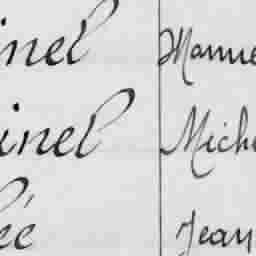 inel Manue
inel Miche
ée Jean